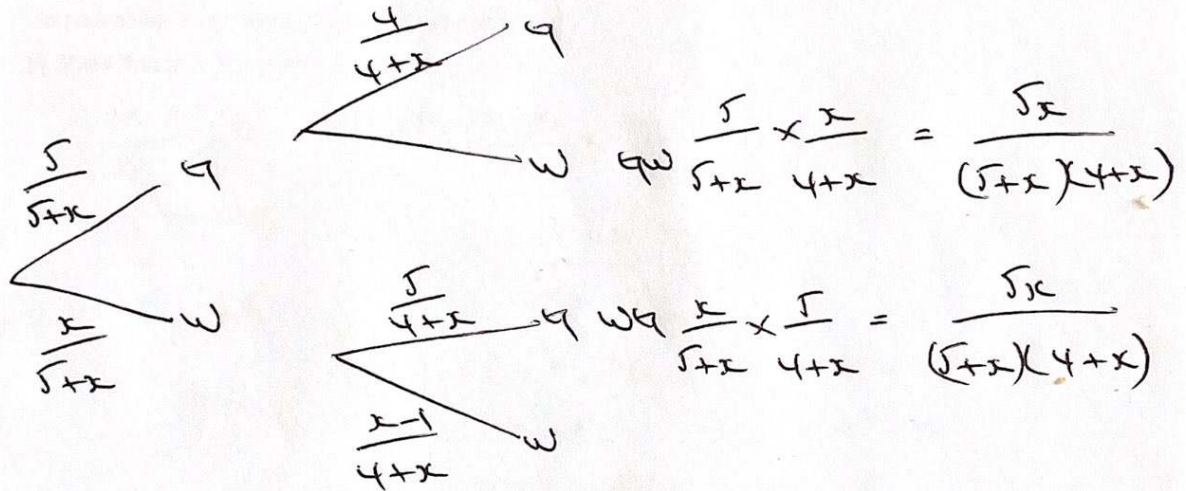 4/(4+x) G
5/(5+x) G
W GW 5/(5+x) × x/(4+x) = 5x/((5+x)(4+x))
x/(5+x) W
5/(4+x) G WG x/(5+x) × 5/(4+x) = 5x/((5+x)(4+x))
(x-1)/(4+x) W